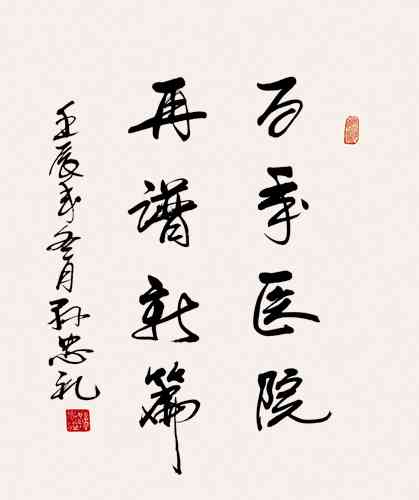 百年医院
再谱新篇
壬辰年冬月孙忠礼